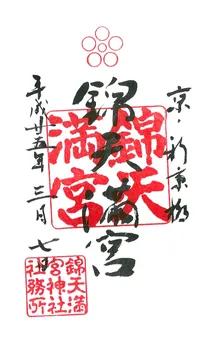 京・新京極
錦天満宮
平成廿五年三月七日
錦天
満宮
錦天満
宮神社
社務所